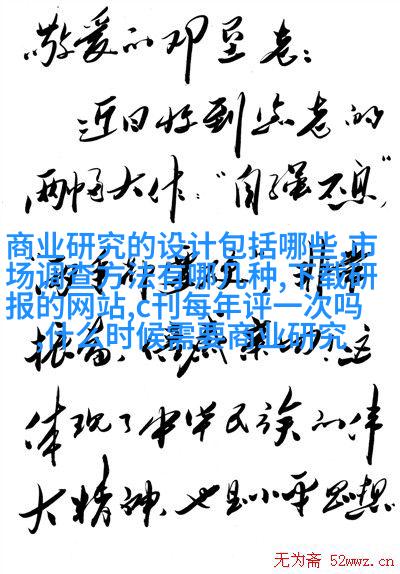 敬爱的邓垦老:
近日收到您老的
两幅大作:“自强不息”
商业研究的设计包括哪些,市
场调查方法有哪几种,下载研
报的网站,c刊每年评一次吗
,什么时候需要商业研究
体现了中华民族的伟
大精神,也是小平思想
无为斋 52wwz.cn